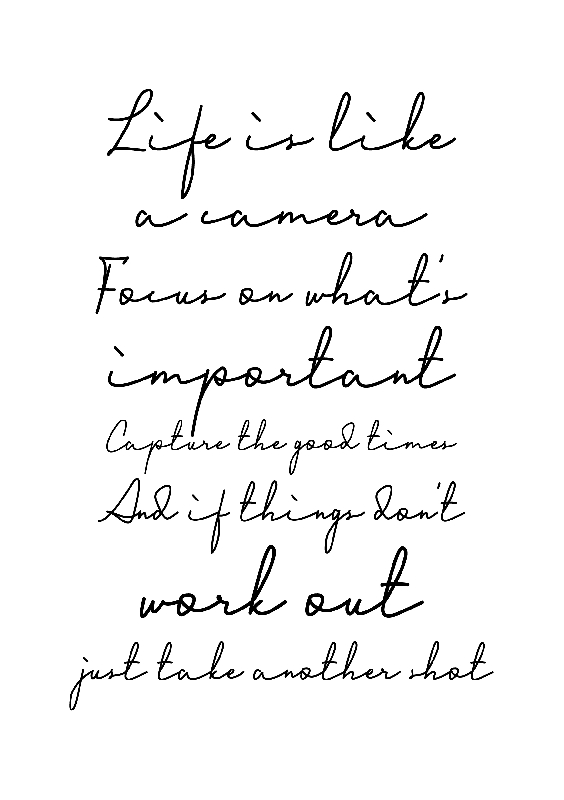 Life is like
a camera
Focus on what's
important
Capture the good times
And if things don't
work out
just take another shot